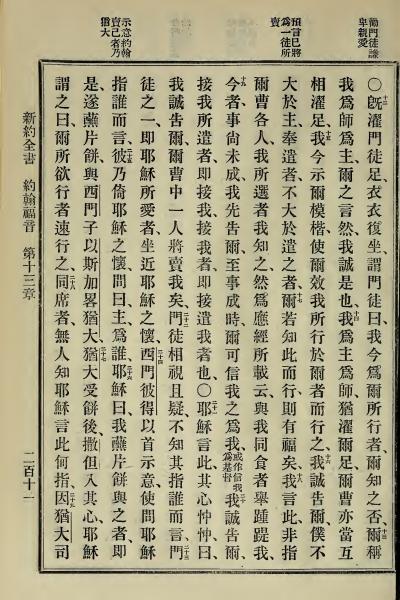 勸門徒謙
卑親愛
預言已將
爲一徒所
賣
示意約翰
賣己者乃
猶大
○十二旣濯門徒足、衣衣復坐、謂門徒曰、我今爲爾所行者、爾知之否、十三爾稱
我爲師爲主、爾之言然、我誠是也、十四我爲主爲師、猶濯爾足、爾曹亦當互
相濯足、十五我今示爾模楷、使爾效我所行於爾者而行之、十六我誠告爾、僕不
大於主、奉遣者不大於遣之者、十七爾若知此而行、則有福矣、十八我言此非指
爾曹各人、我所選者我知之、然爲應經所載云、與我同食者、舉踵踶我、
十九今者事尚未成、我先告爾、至事成時、爾可信我之爲我、或作信我爲基督二十我誠告爾、
接我所遣者、卽接我、接我者、卽接遣我者也、○二十一耶穌言此、其心忡忡曰、
我誠告爾、爾曹中一人將賣我矣、二十二門徒相視且疑、不知其指誰而言、二十三門
徒之一、卽耶穌所愛者、坐近耶穌之懷、二十四西門彼得以首示意、使問耶穌
指誰而言、二十五彼乃倚耶穌之懷、問曰、主爲誰、二十六耶穌曰、我蘸片餅與之者、卽
是、遂蘸片餅、與西門子以斯加畧猶大、二十七猶大受餅後、撒但入其心、耶穌
謂之曰、爾所欲行者速行之、二十八同席者、無人知耶穌言此何指、二十九因猶大司
新約全書 約翰福音 第十三章 二百十一